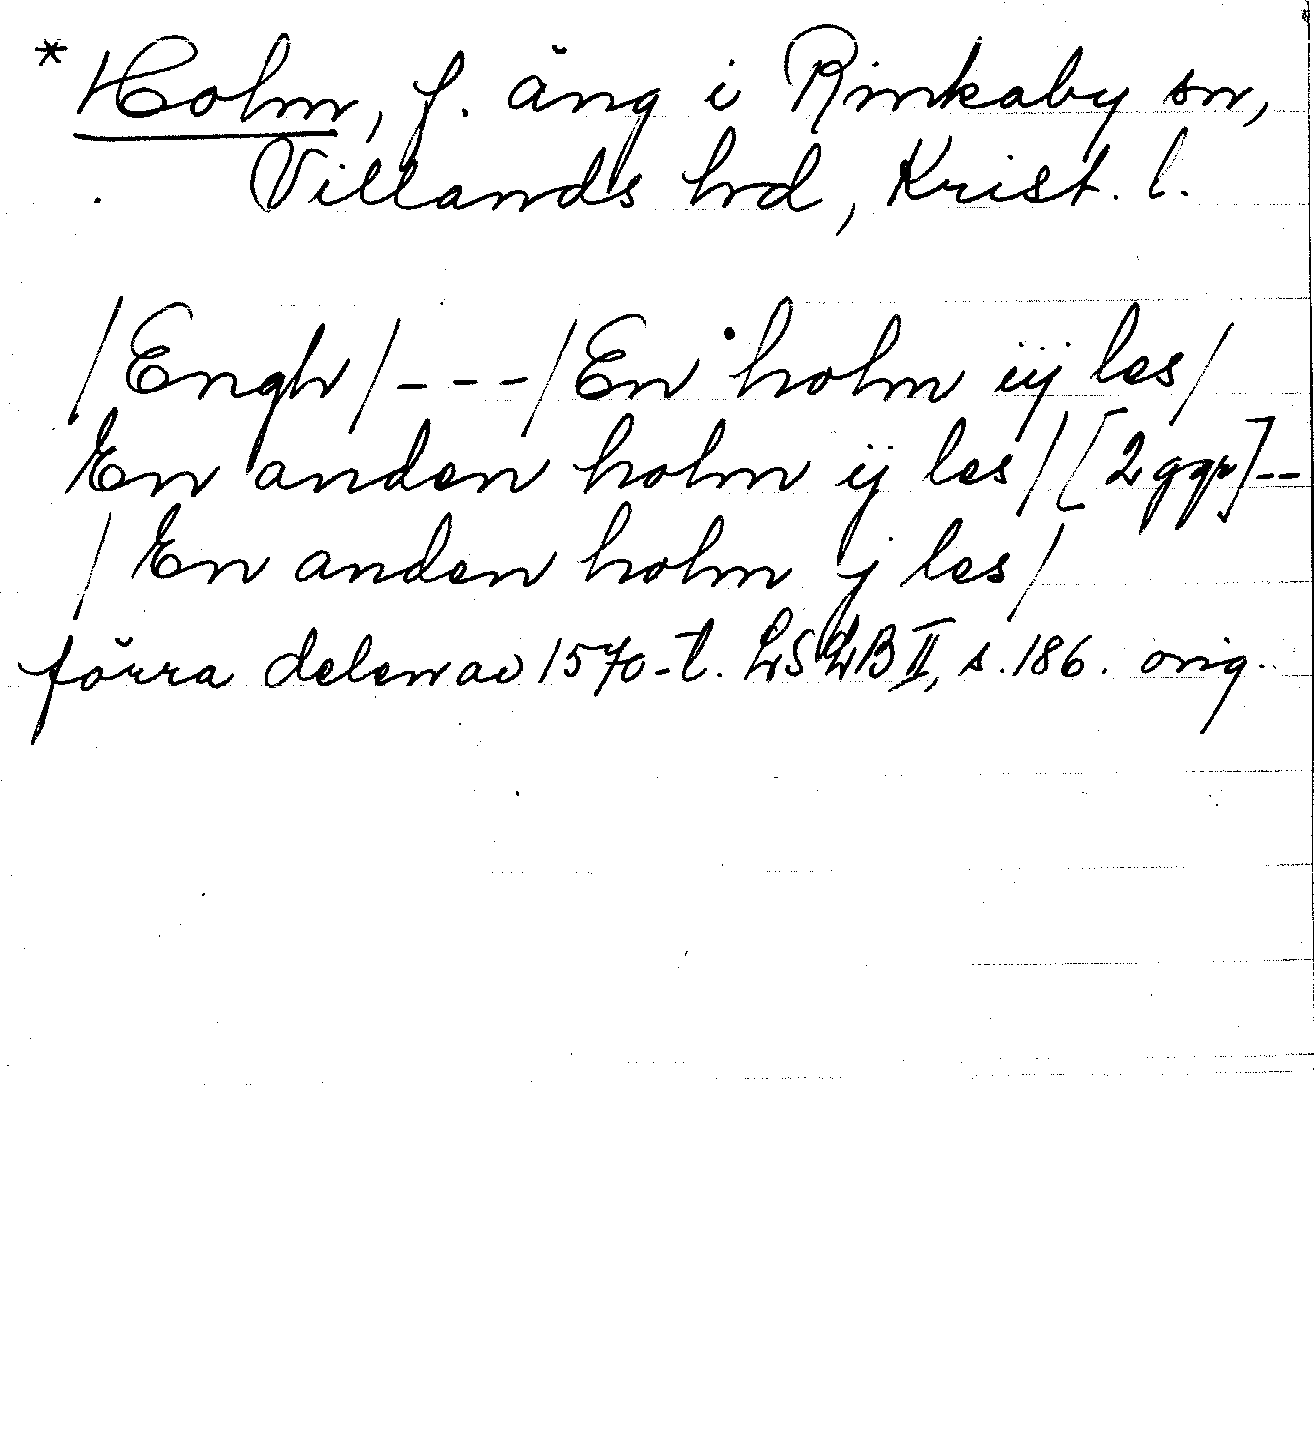 * Holm, f. äng i Rinkaby sn,
Villands hd, Krist. l.
/Engh/---/En holm iij les/
En anden holm ij les/ [2 ggr]--
/En anden holm j les/
förra delen av 1570-t. LSLB II, s. 186. orig.